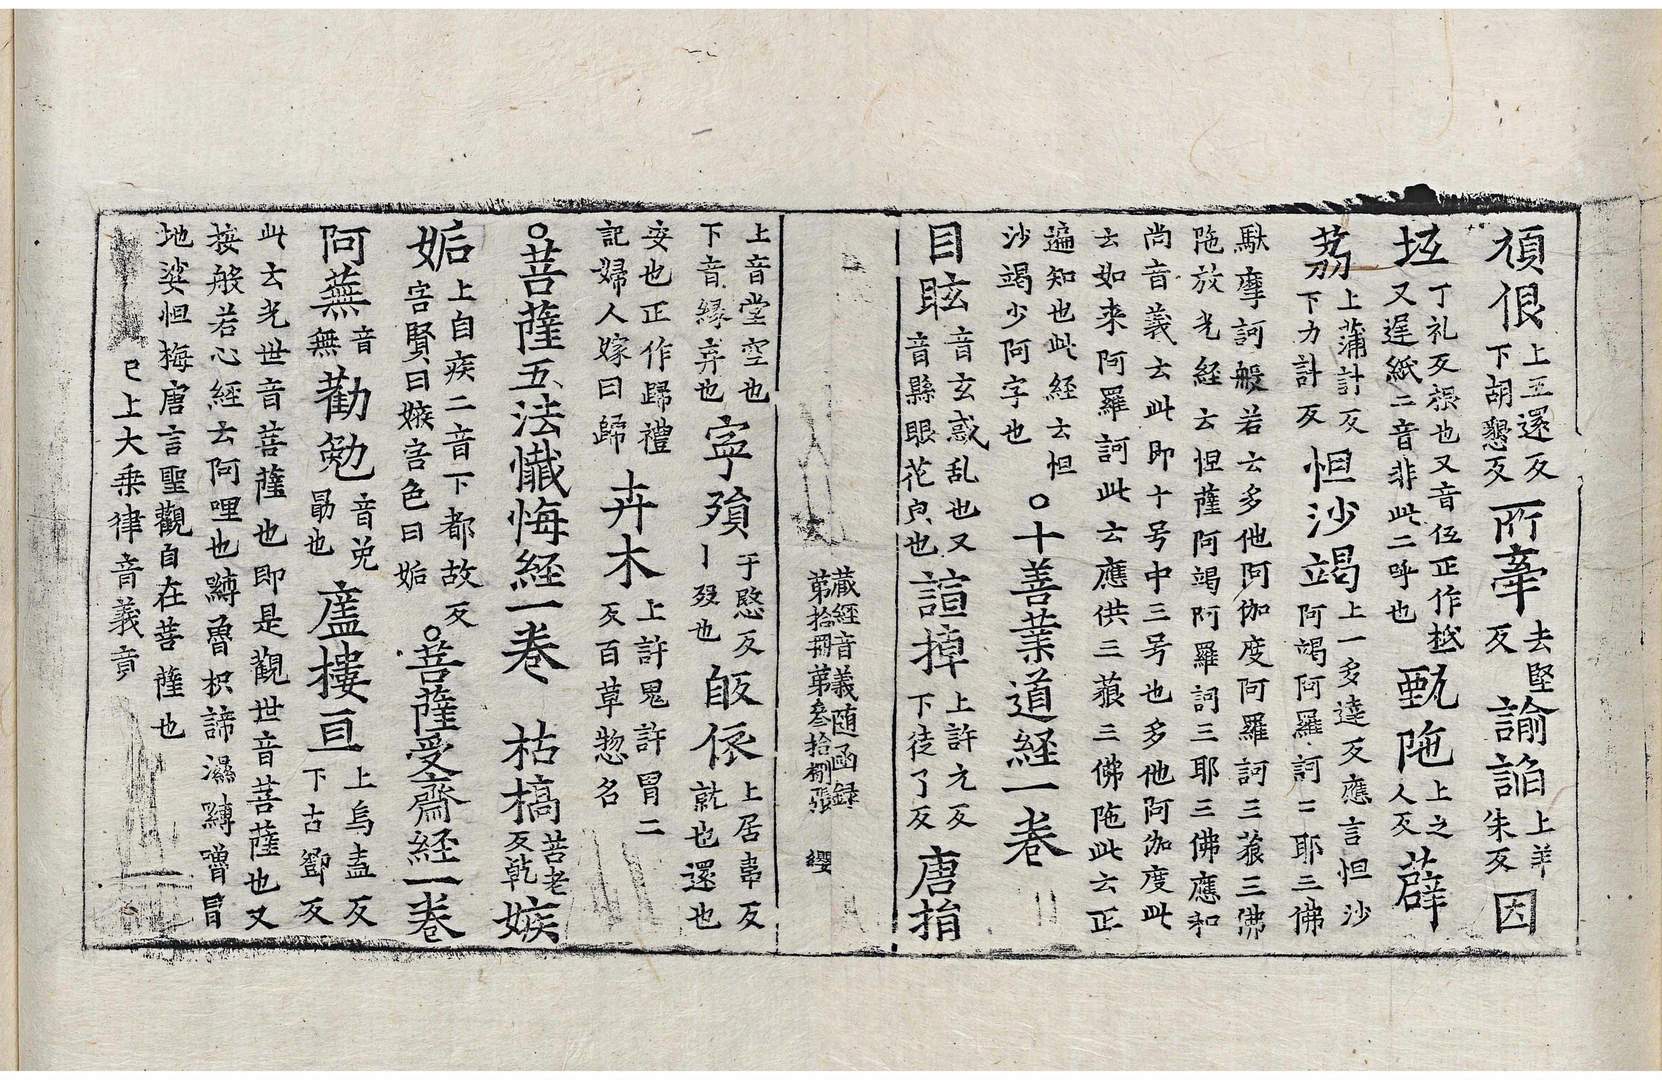 頑佷上五還反下胡懇反所牽去堅反諭諂上羊朱反因
坘丁礼反柢也又音伍正作越又遅紙二音非此二呼也甄陁上之人反薜
茘上蒲計反下力計反怛沙竭上一多達反應言怛沙阿竭阿羅訶二耶三佛
馱摩訶般若云多他阿伽度阿羅訶三藐三佛陁放光經云怛薩阿竭阿羅訶三耶三佛應和
尚音義云此即十号中三号也多他阿伽度此云如来阿羅訶此云應供三藐三佛陁此云正
遍知也此經云怛沙竭少阿字也○十善業道経一巻
目眩音玄惑乱也又音縣眼花皃也諠掉上許元反下徒了反唐捐
藏經音義随函録第拾冊第叄拾捌張 纓
上音堂空也下音縁弃也寜殞于愍反丨歿也皈依上居䖝反就也還也
妄也正作歸禮記婦人嫁曰歸卉木上許鬼許冐二反百草惣名
○菩薩五法懺悔経一巻 枯槁苦老反乾嫉
妬上自疾二音下都故反妬害賢曰嫉害色曰妬○菩薩受齋経一巻
阿蕪音無勸勉音免勗也廅樓亘上烏盍反下古鄧反
此云光世音菩薩也即是觀世音菩薩也又按般若心經云阿哩也嚩魯枳諦濕嚩嚕冐
地娑怛梅唐言聖觀自在菩薩也
已上大乗律音義竟